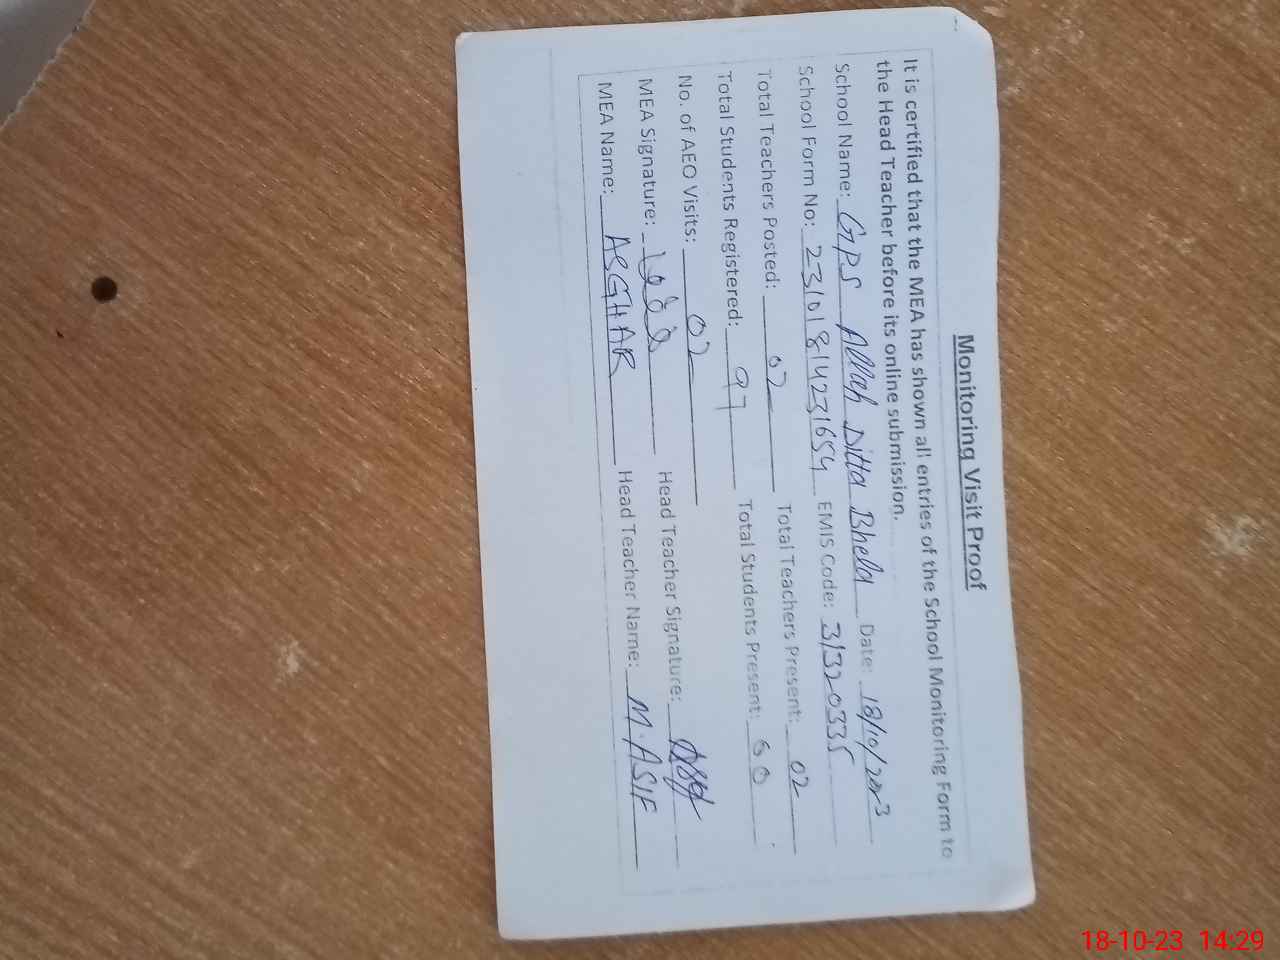 Monitoring Visit Proof
It is certified that the MEA has shown all entries of the School Monitoring Form to
the Head Teacher before its online submission.
School Name: GPS Allah Ditta Bhela Date: 18/10/2023
School Form No: 23101814231654 EMIS Code: 31320335
Total Teachers Posted: 02 Total Teachers Present: 02
Total Students Registered: 97 Total Students Present: 60
No. of AEO Visits: 02
MEA Signature: Head Teacher Signature:
MEA Name: ASGHAR Head Teacher Name: M.ASIF
18-10-23 14:29